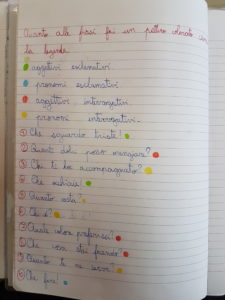 Accanto alle frasi fai un pallino colorato con
la legenda.
aggettivi esclamativi
pronomi esclamativi
aggettivi interrogativi.
pronomi interrogativi.
① Che sguardo triste!
② Quanti dolci posso mangiare?
③ Chi ti ha accompagnato?
④ Che nuvole!
⑤ Quanto costa?
⑥ Chi è?
⑦ Quale colore preferisci?
⑧ Che cosa stai facendo?
⑨ Quanto te ne serve
⑩ Che fine!